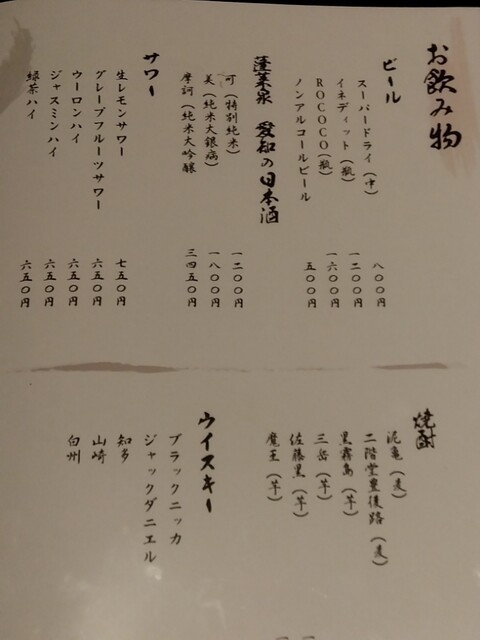 お飲み物
ビール
スーパードライ（中） 八〇〇円
イネディット（瓶） 一二〇〇円
ＲＯＣＯＣＯ（瓶） 一六〇〇円
ノンアルコールビール 五〇〇円
蓬莱泉 愛知の日本酒
可（特別純米） 一二〇〇円
美（純米大銀病） 一八〇〇円
摩訶（純米大吟醸 三四五〇円
サワー
生レモンサワー 七五〇円
グレープフルーツサワー 六五〇円
ウーロンハイ 六五〇円
ジャスミンハイ 六五〇円
緑茶ハイ 六五〇円
焼酎
泥亀（麦）
二階堂豊後路（麦）
黒霧島（芋）
三岳（芋）
佐藤黒（芋）
魔王（芋）
ウイスキー
ブラックニッカ
ジャックダニエル
知多
山崎
白州